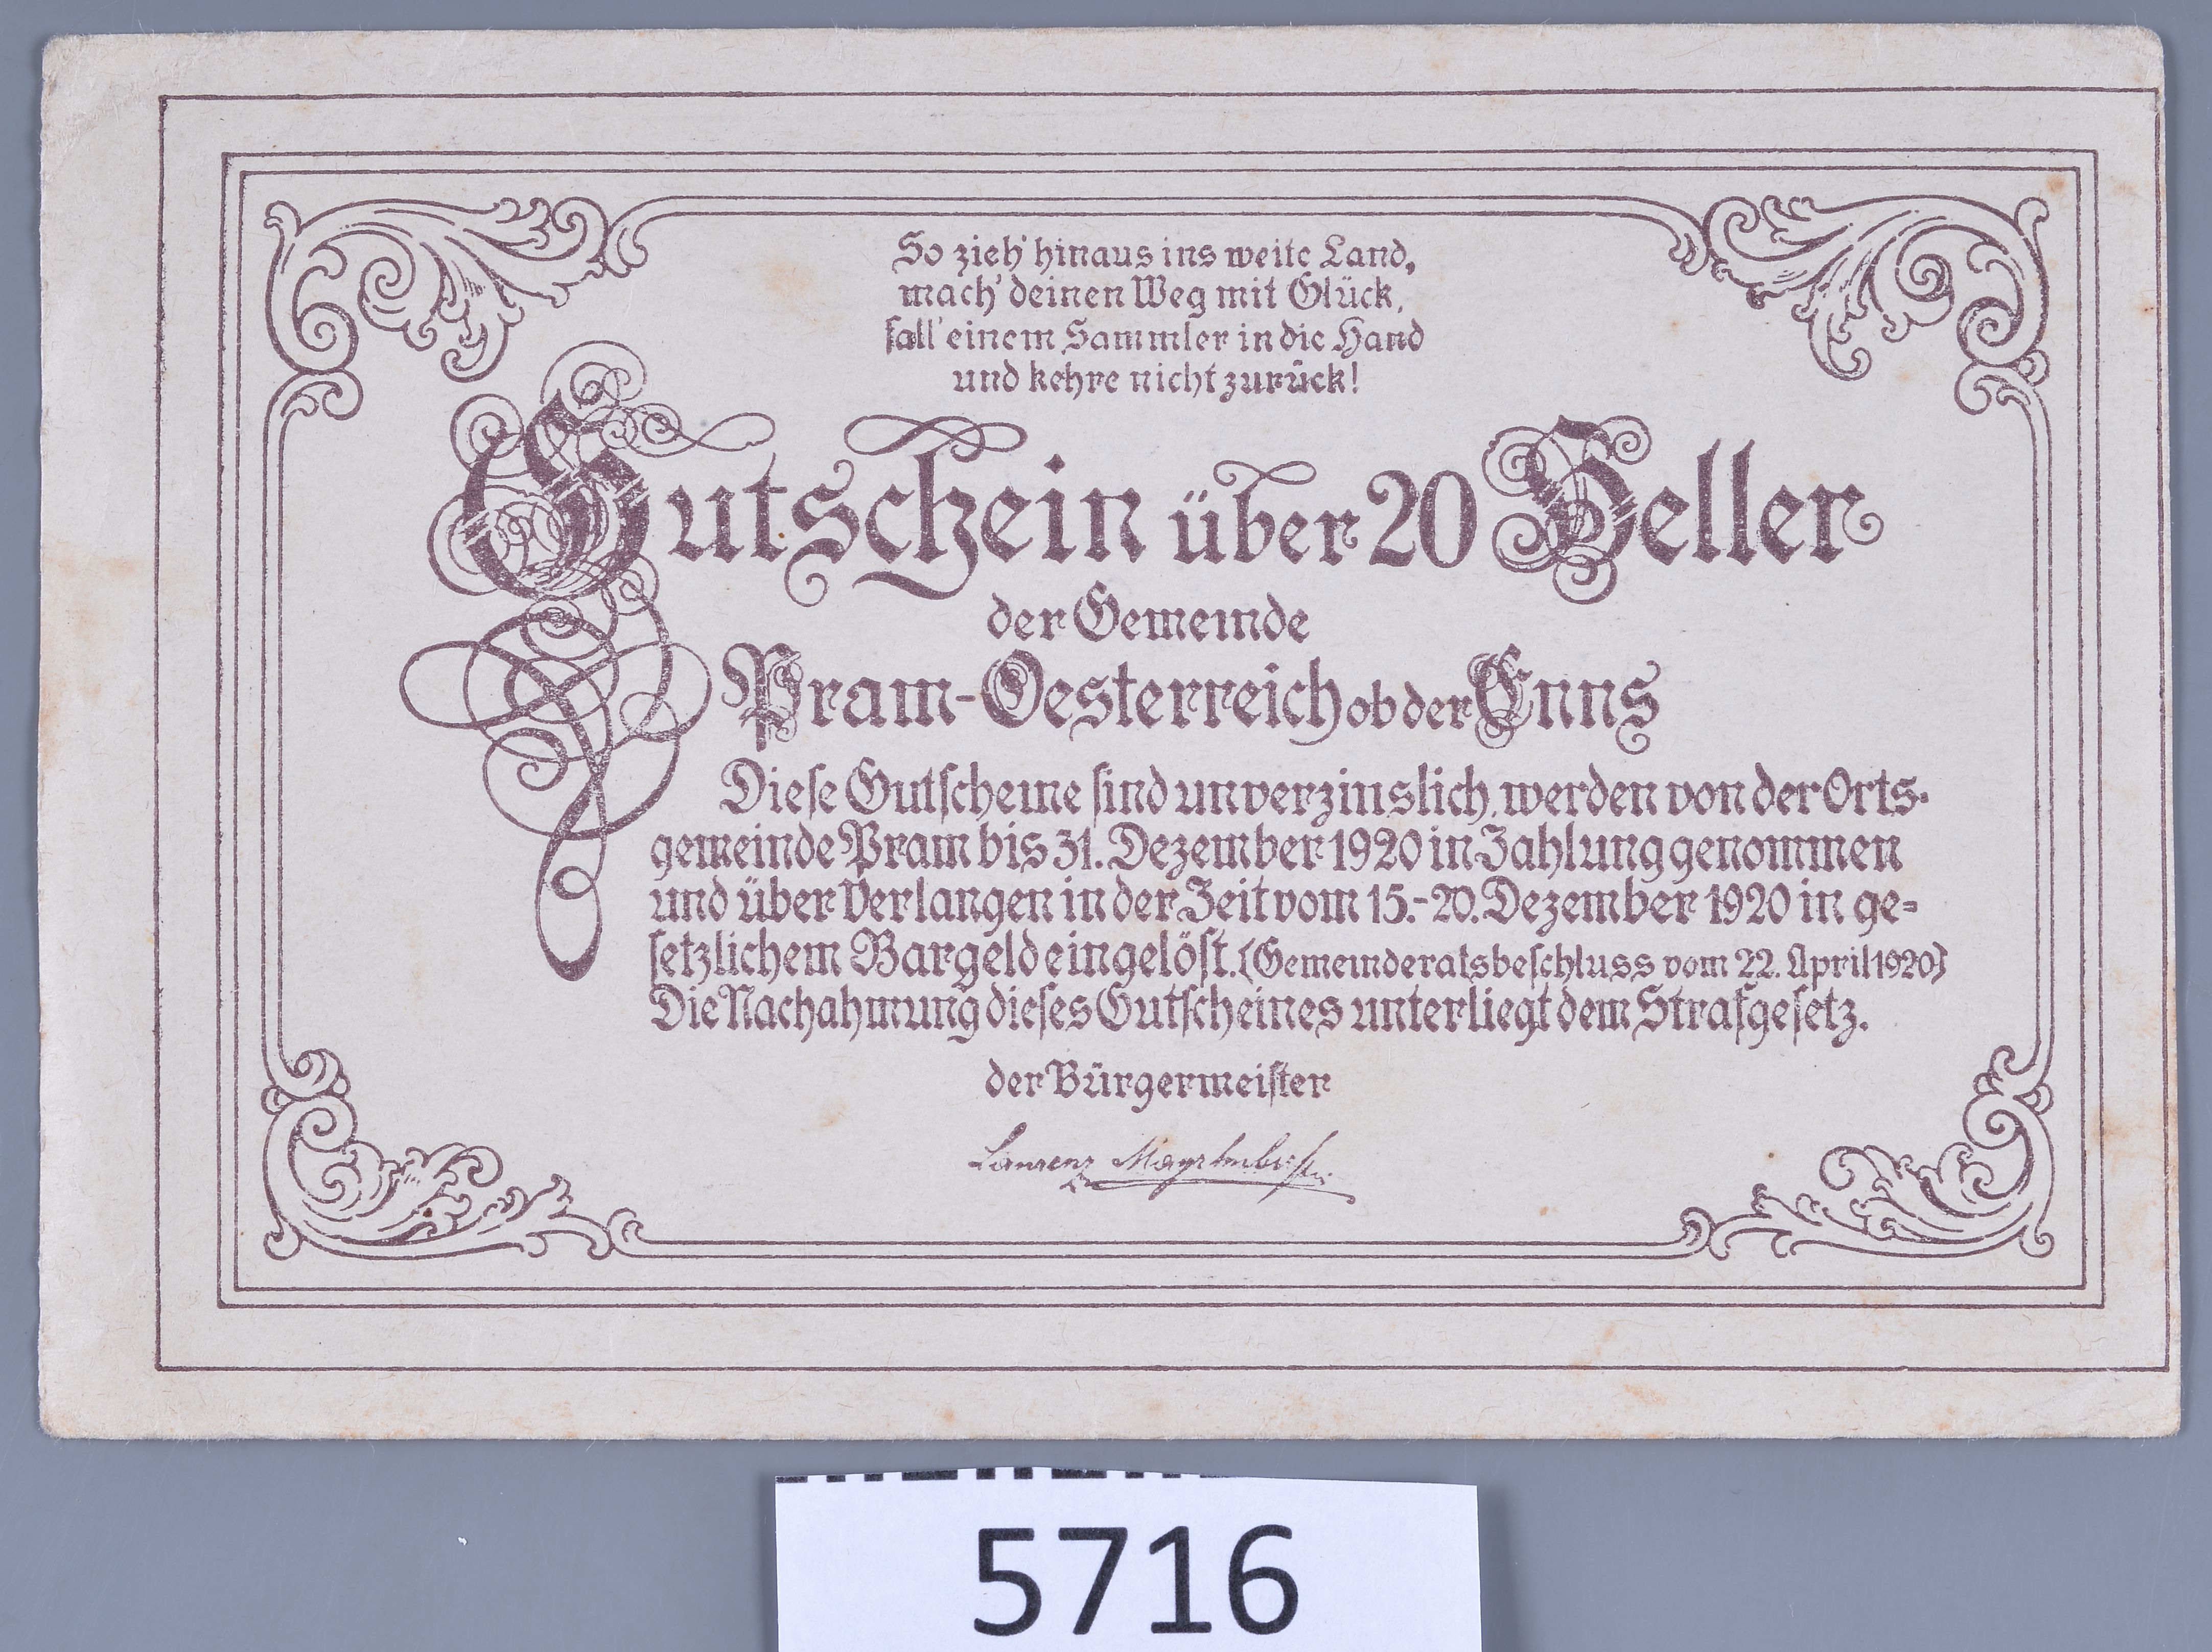 So zieh' hinaus ins weite Land,
mach' deinen Weg mit Glück,
fall' einem Sammler in die Hand
und kehre nicht zurück!
Gutschein über 20 Heller
der Gemeinde
Pram-Oesterreich ob der Enns
Diese Gutscheine sind unverzinslich, werden von der Orts-
gemeinde Pram bis 31. Dezember 1920 in Zahlung genommen
und über Verlangen in der Zeit vom 15.-20. Dezember 1920 in ge-
setzlichem Bargeld eingelöst. (Gemeinderatsbeschluss vom 22. April 1920)
Die Nachahmung dieses Gutscheines unterliegt dem Strafgesetz.
der Bürgermeister
Laurenz
5716